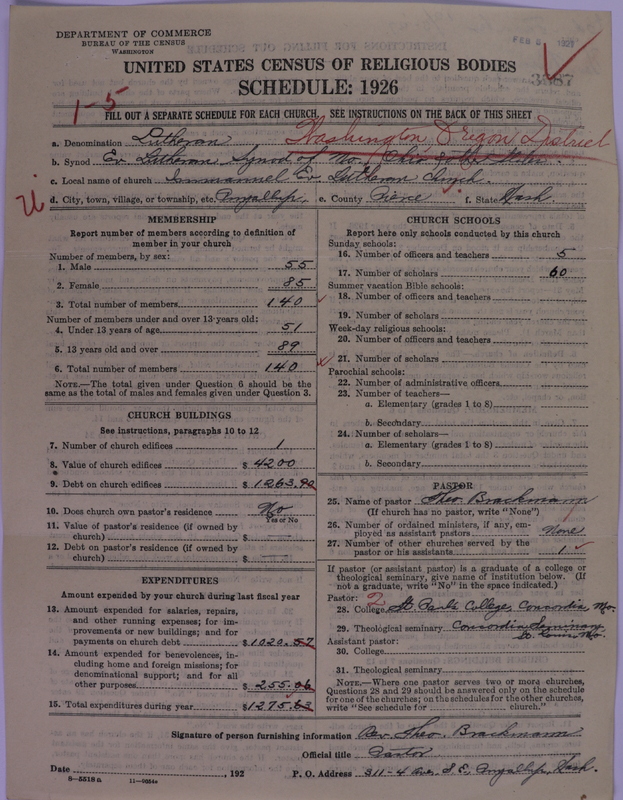 DEPARTMENT OF COMMERCE
BUREAU OF THE CENSUS
WASHINGTON
FEB 1927
UNITED STATES CENSUS OF RELIGIOUS BODIES
SCHEDULE: 1926
1-5
FILL OUT A SEPARATE SCHEDULE FOR EACH CHURCH. SEE INSTRUCTIONS ON THE BACK OF THIS SHEET
Washington Oregon District
a. Denomination Lutheran
b. Synod Ev. Lutheran Synod of Mo. Ohio & other States
c. Local name of church Immanuel Ev. Lutheran Church.
d. City, town, village, or township, etc. Puyallup. e. County Pierce f. State Wash.
MEMBERSHIP
Report number of members according to definition of member in your church
Number of members, by sex:
1. Male 55
2. Female 85
3. Total number of members 140
Number of members under and over 13 years old:
4. Under 13 years of age 51
5. 13 years old and over 89
6. Total number of members 140
NOTE.—The total given under Question 6 should be the same as the total of males and females given under Question 3.
CHURCH BUILDINGS
See instructions, paragraphs 10 to 12
7. Number of church edifices 1
8. Value of church edifices $ 4200
9. Debt on church edifices $ 1263.90
10. Does church own pastor's residence No
Yes or No
11. Value of pastor's residence (if owned by church) $
12. Debt on pastor's residence (if owned by church) $
EXPENDITURES
Amount expended by your church during last fiscal year
13. Amount expended for salaries, repairs, and other running expenses; for improvements or new buildings; and for payments on church debt $ 1020.57
14. Amount expended for benevolences, including home and foreign missions; for denominational support; and for all other purposes $ 255.06
15. Total expenditures during year $ 1275.63
CHURCH SCHOOLS
Report here only schools conducted by this church
Sunday schools:
16. Number of officers and teachers 5
17. Number of scholars 60
Summer vacation Bible schools:
18. Number of officers and teachers
19. Number of scholars
Week-day religious schools:
20. Number of officers and teachers
21. Number of scholars
Parochial schools:
22. Number of administrative officers
23. Number of teachers—
a. Elementary (grades 1 to 8)
b. Secondary
24. Number of scholars—
a. Elementary (grades 1 to 8)
b. Secondary
PASTOR
25. Name of pastor Theo. Brackmann
(If church has no pastor, write "None")
26. Number of ordained ministers, if any, employed as assistant pastors None
27. Number of other churches served by the pastor or his assistants 1
If pastor (or assistant pastor) is a graduate of a college or theological seminary, give name of institution below. (If not a graduate, write "No" in the space indicated.)
Pastor: 2
28. College St. Paul's College, Concordia Mo.
29. Theological seminary Concordia Seminary St. Louis Mo.
Assistant pastor:
30. College
31. Theological seminary
NOTE.—Where one pastor serves two or more churches, Questions 28 and 29 should be answered only on the schedule for one of the churches; on the schedules for the other churches, write "See schedule for church."
Signature of person furnishing information Rev. Theo. Brackmann
Official title Pastor
Date , 192 P. O. Address 311-4 Ave, S.E., Puyallup, Wash.
8-5518 a 11-9684a